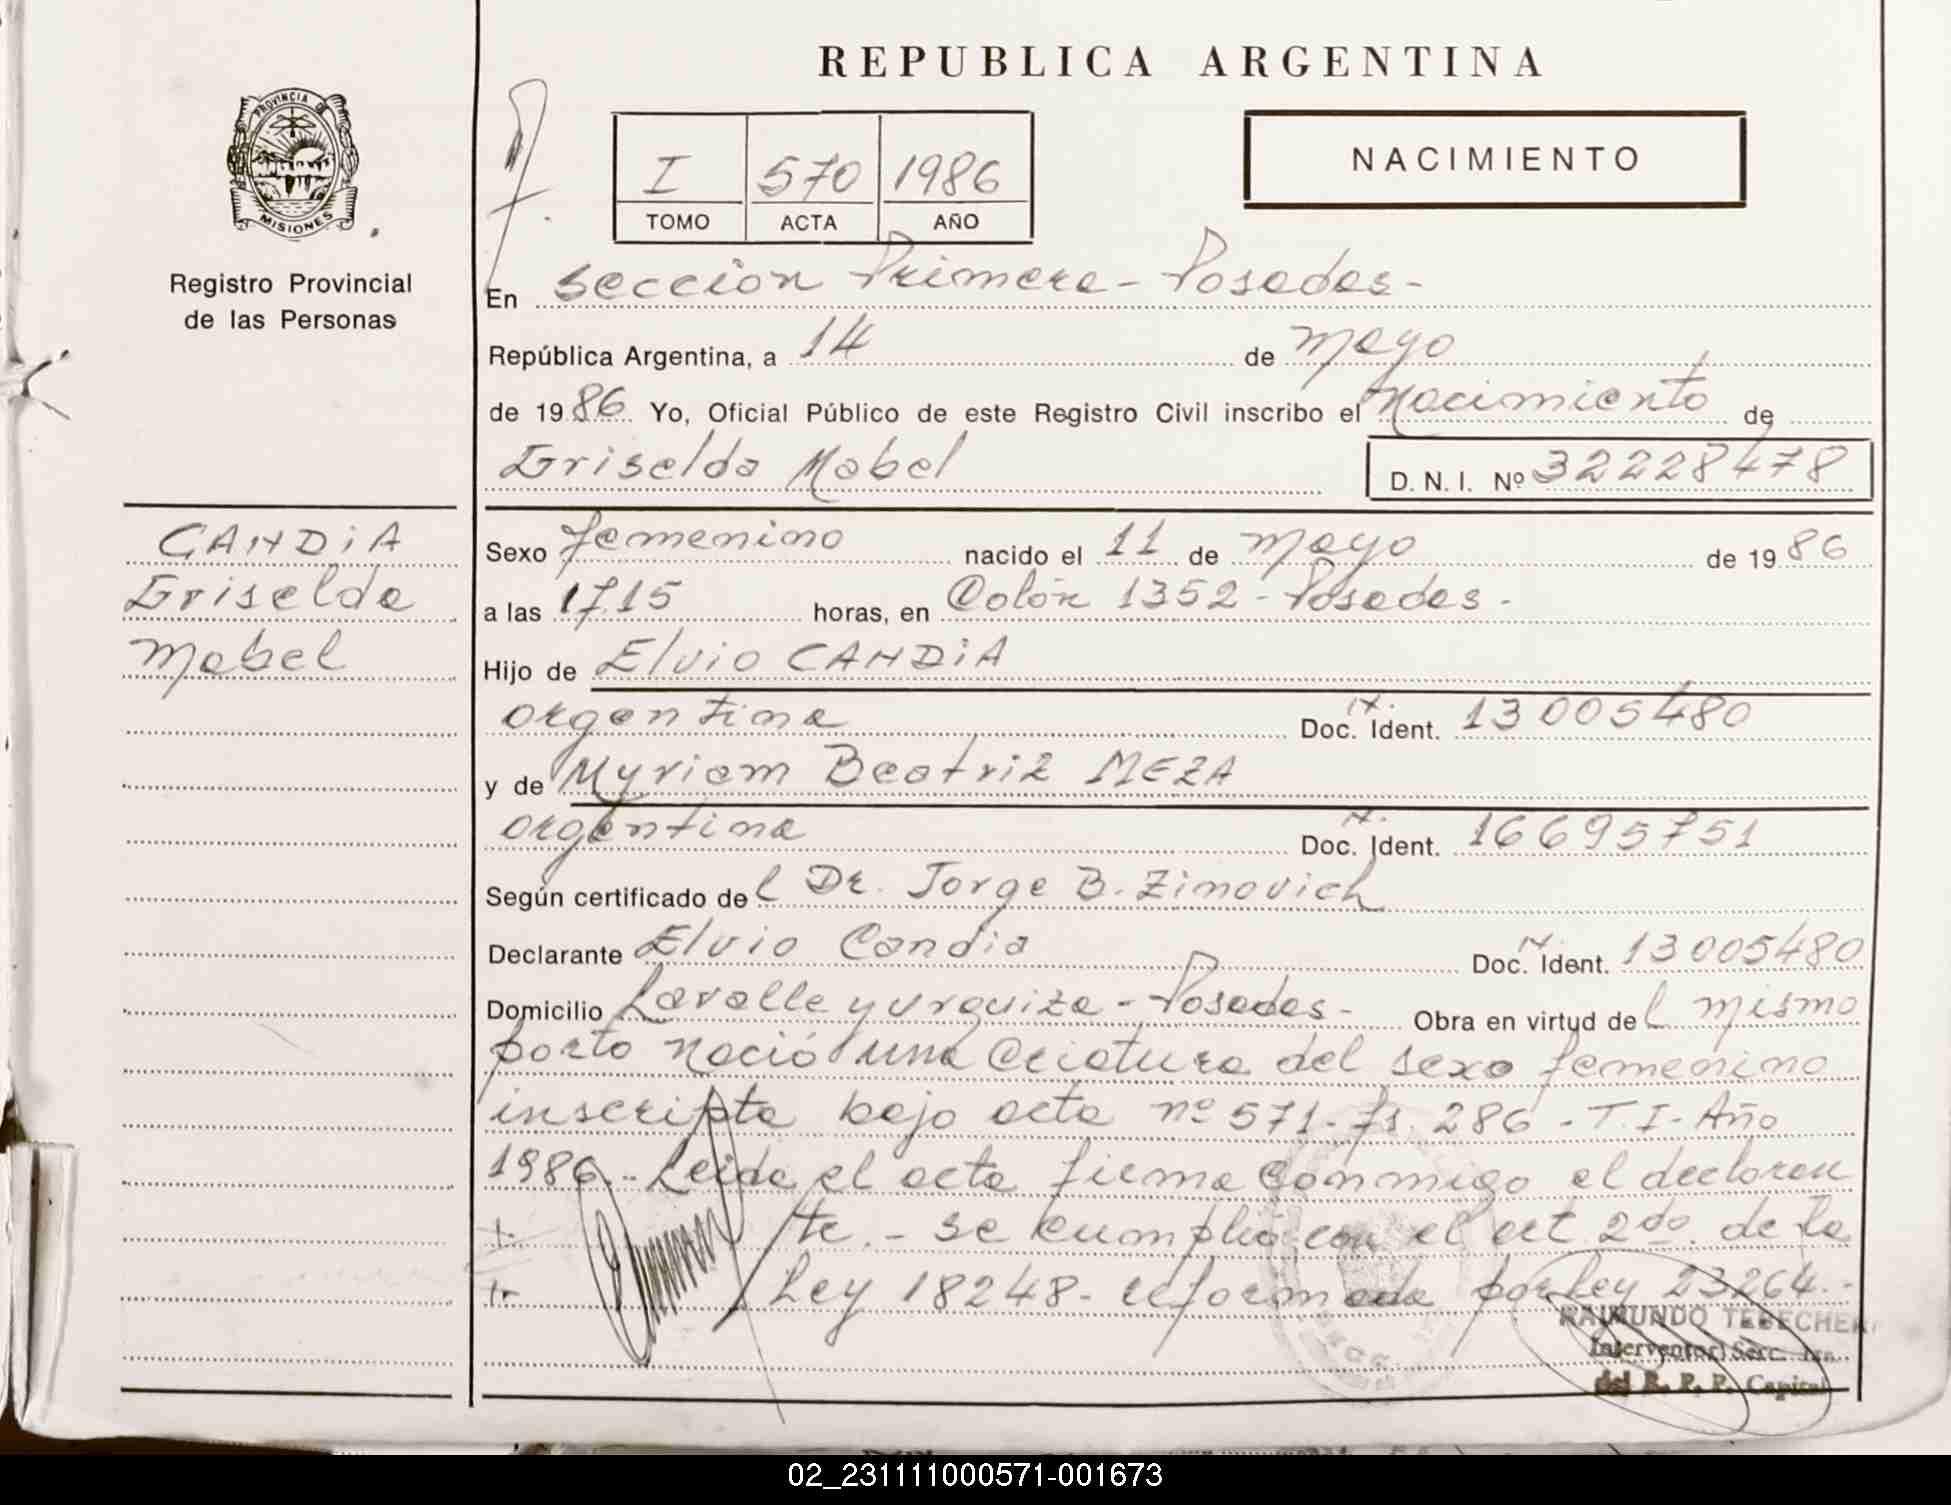 REPUBLICA ARGENTINA
PROVINCIA DE
MISIONES
Registro Provincial
de las Personas
I 570 1986
TOMO ACTA AÑO
NACIMIENTO
En Sección Primera - Posadas -
República Argentina, a 14 de mayo
de 1986 Yo, Oficial Público de este Registro Civil inscribo el nacimiento de
Griselda Mabel D. N. I. Nº 32228478
CANDIA
Griselda
Mabel
Sexo femenino nacido el 11 de mayo de 1986
a las 17.15 horas, en Colón 1352 - Posadas -
Hijo de Elvio CANDIA
argentina Doc. Ident. 13005480
y de Myriam Beatriz MEZA
argentina Doc. Ident. 16695751
Según certificado del Dr. Jorge B. Zimovich
Declarante Elvio Candia Doc. Ident. 13005480
Domicilio Lavalle y Urquiza - Posadas - Obra en virtud del mismo
parto nació una criatura del sexo femenino
inscripta bajo acta nº 571 - fs. 286 - T. I - Año
1986 .- Leida el acta firma conmigo el declaran
te. - se cumplió con el art 2do. de la
Ley 18248 - reformada por Ley 23264 . -
RAIMUNDO
Interventor Secc. 1ra.
del R. P. P. Capital
02_231111000571-001673